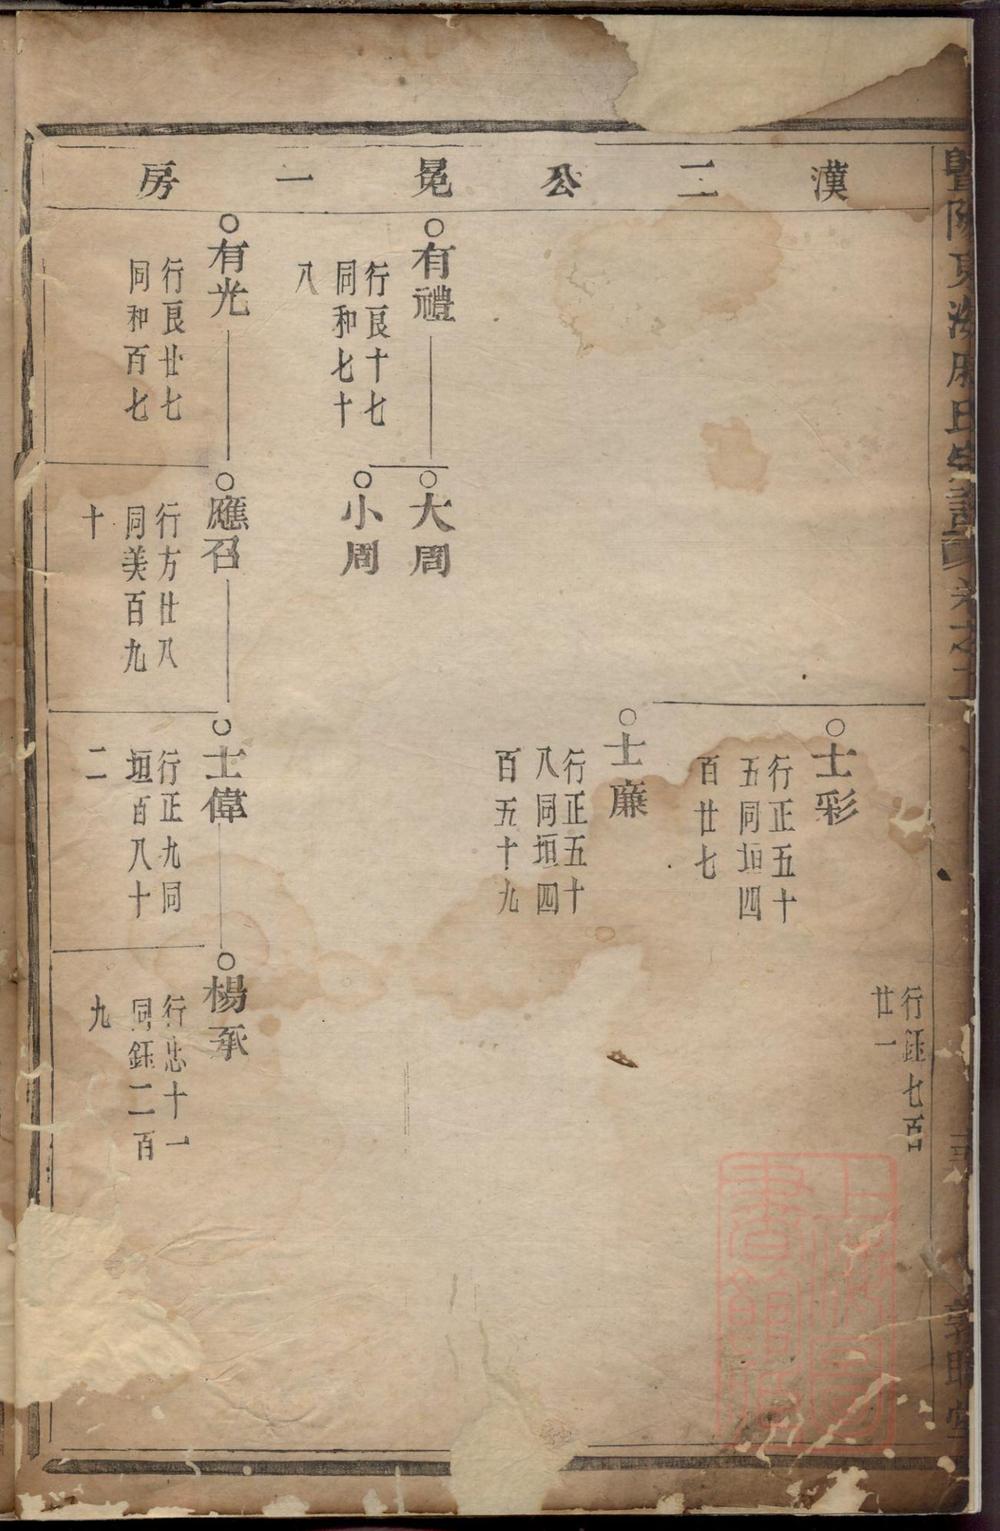 漢二公冕一房
行鈺七百
廿一
士彩
行正五十
五同垣四
百廿七
士廉
行正五十
八同垣四
百五十九
有禮
行良十七
同和七十
八
大周
小周
有光
行良廿七
同和百七
應召
行方廿八
同美百九
十
士偉
行正九同
垣百八十
二
楊承
行忠十一
同鈺二百
九